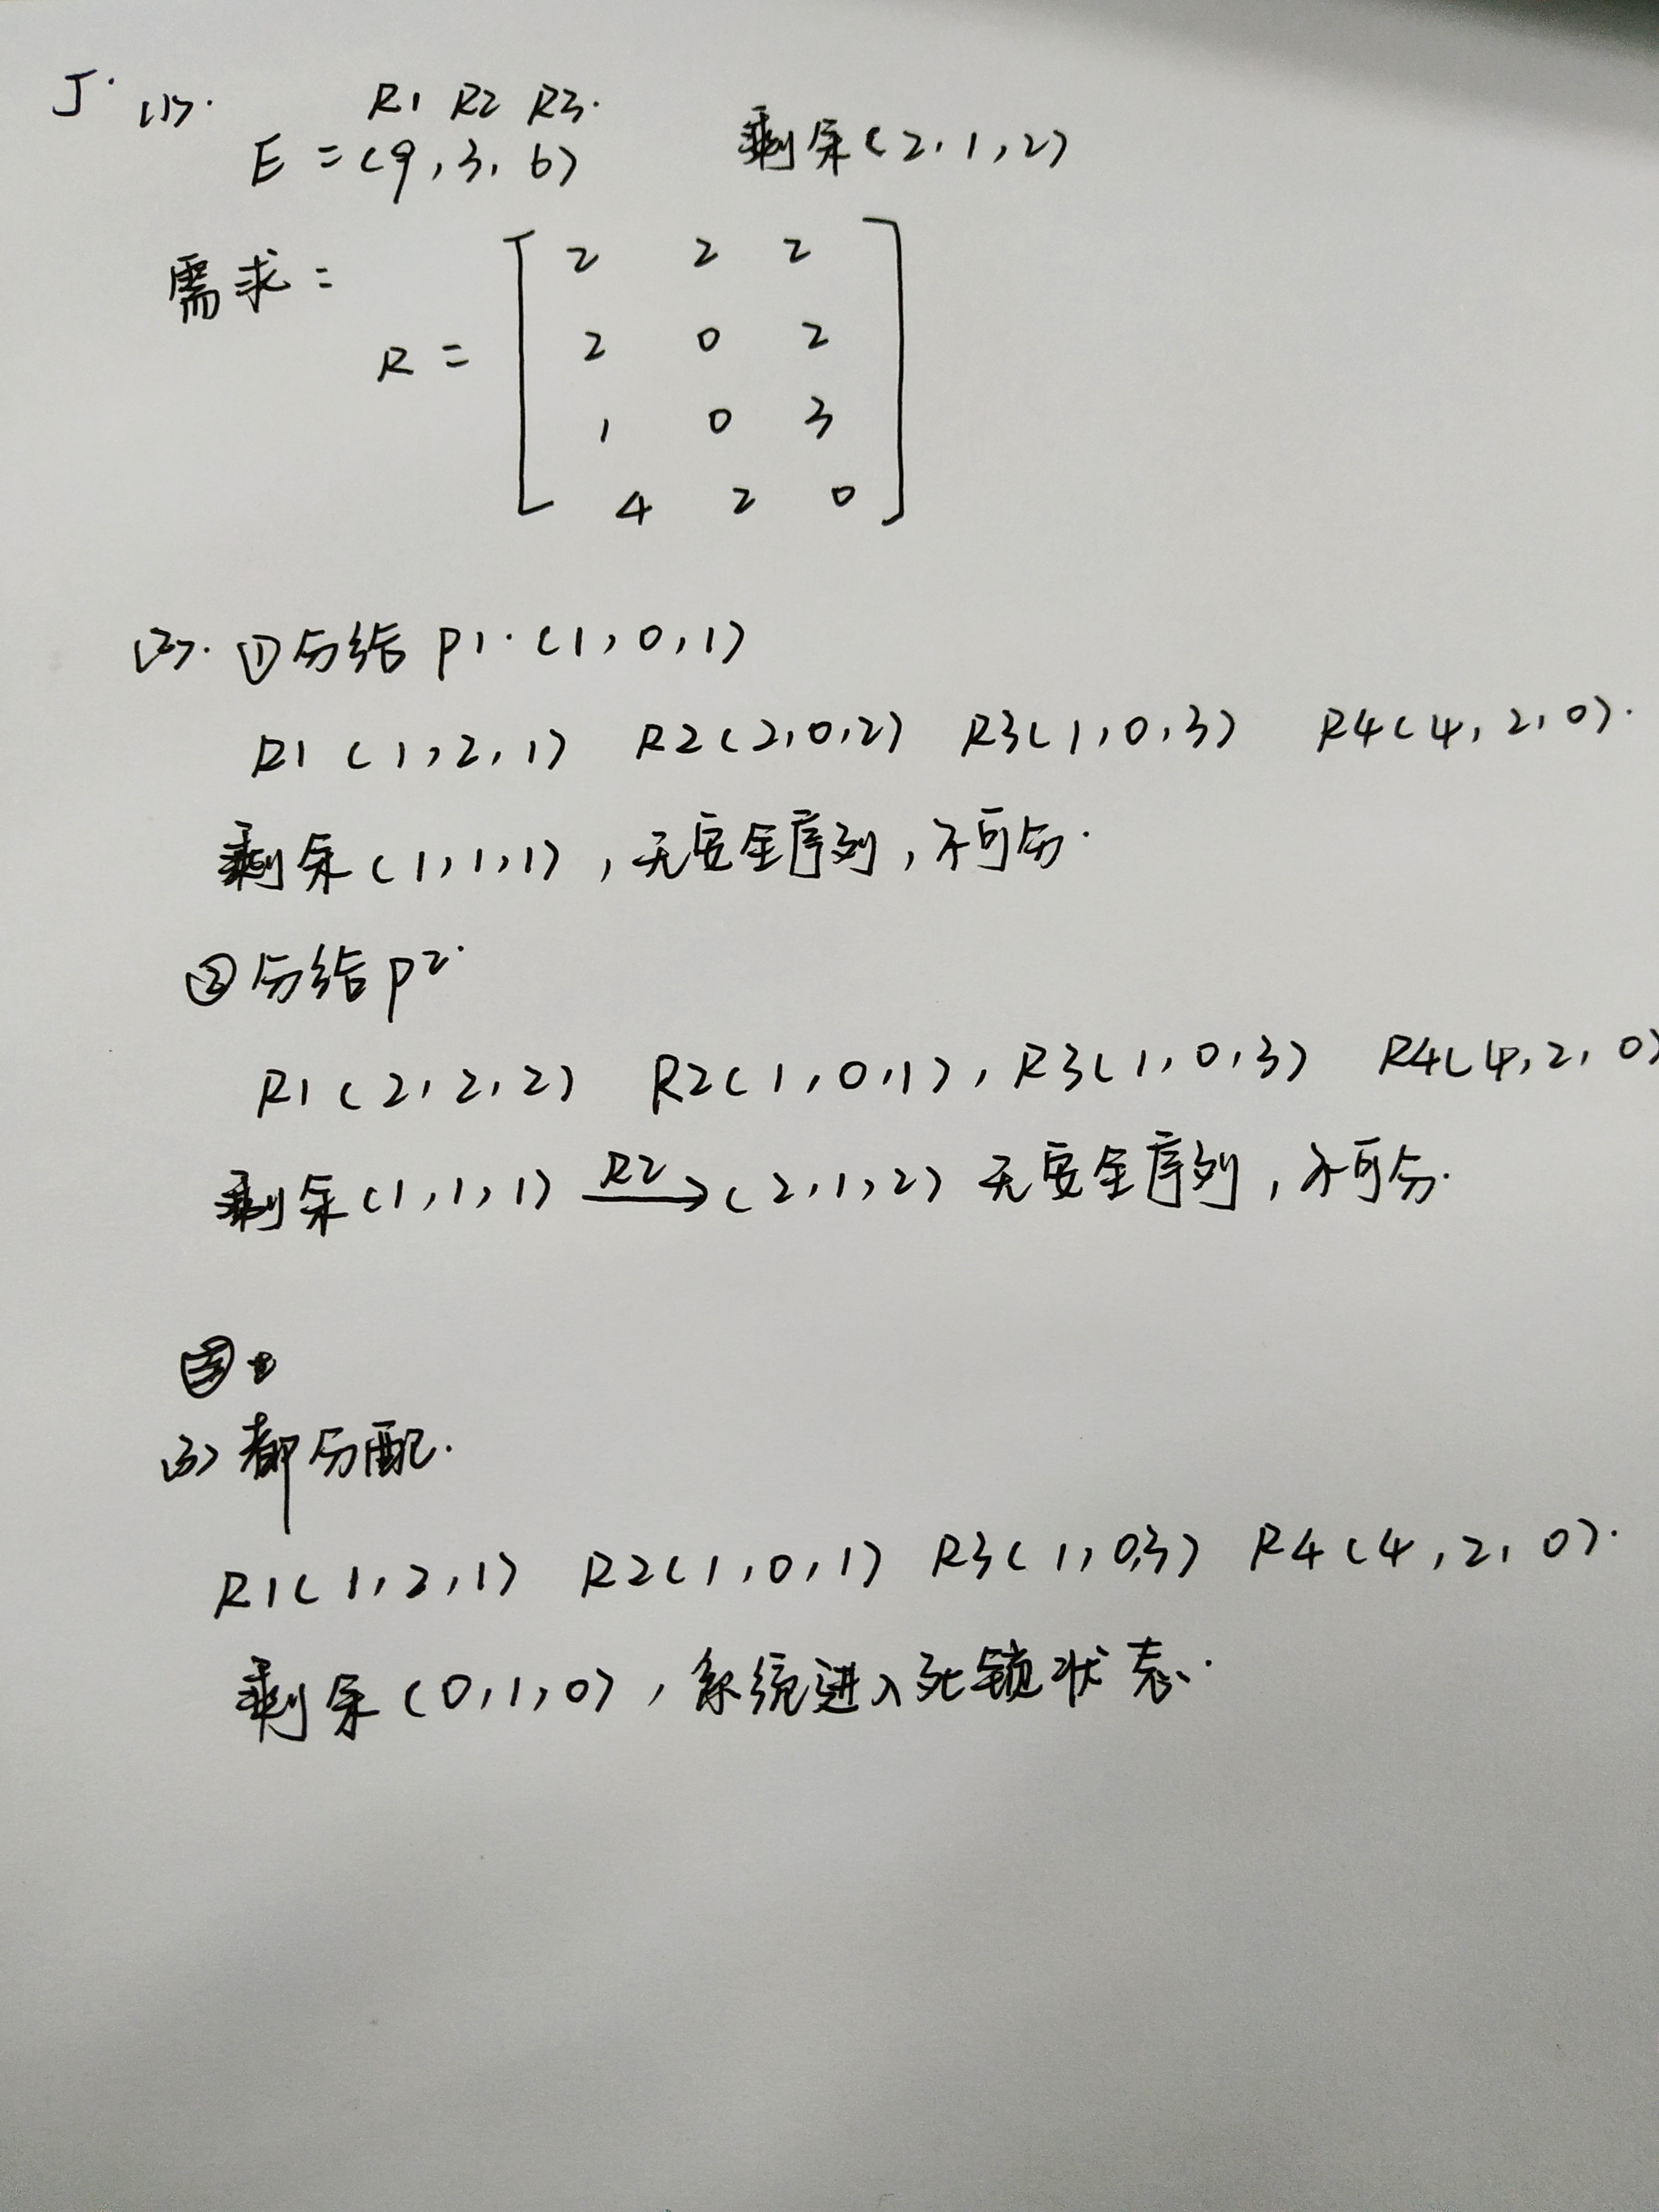 J. (1).
R1 R2 R3.
E = (9, 3, 6) 剩余(2, 1, 2)
需求 =
R =
2 2 2
2 0 2
1 0 3
4 2 0
(2). ①分给 P1. (1, 0, 1)
R1 (1, 2, 1) R2(2, 0, 2) R3(1, 0, 3) R4(4, 2, 0).
剩余(1, 1, 1), 无安全序列, 不可分.
②分给P2.
R1 (2, 2, 2) R2(1, 0, 1), R3(1, 0, 3) R4(4, 2, 0)
剩余(1, 1, 1) R2→ (2, 1, 2) 无安全序列, 不可分.
(3) 都分配.
R1(1, 2, 1) R2(1, 0, 1) R3(1, 0,3) R4(4, 2, 0).
剩余(0, 1, 0), 系统进入死锁状态.